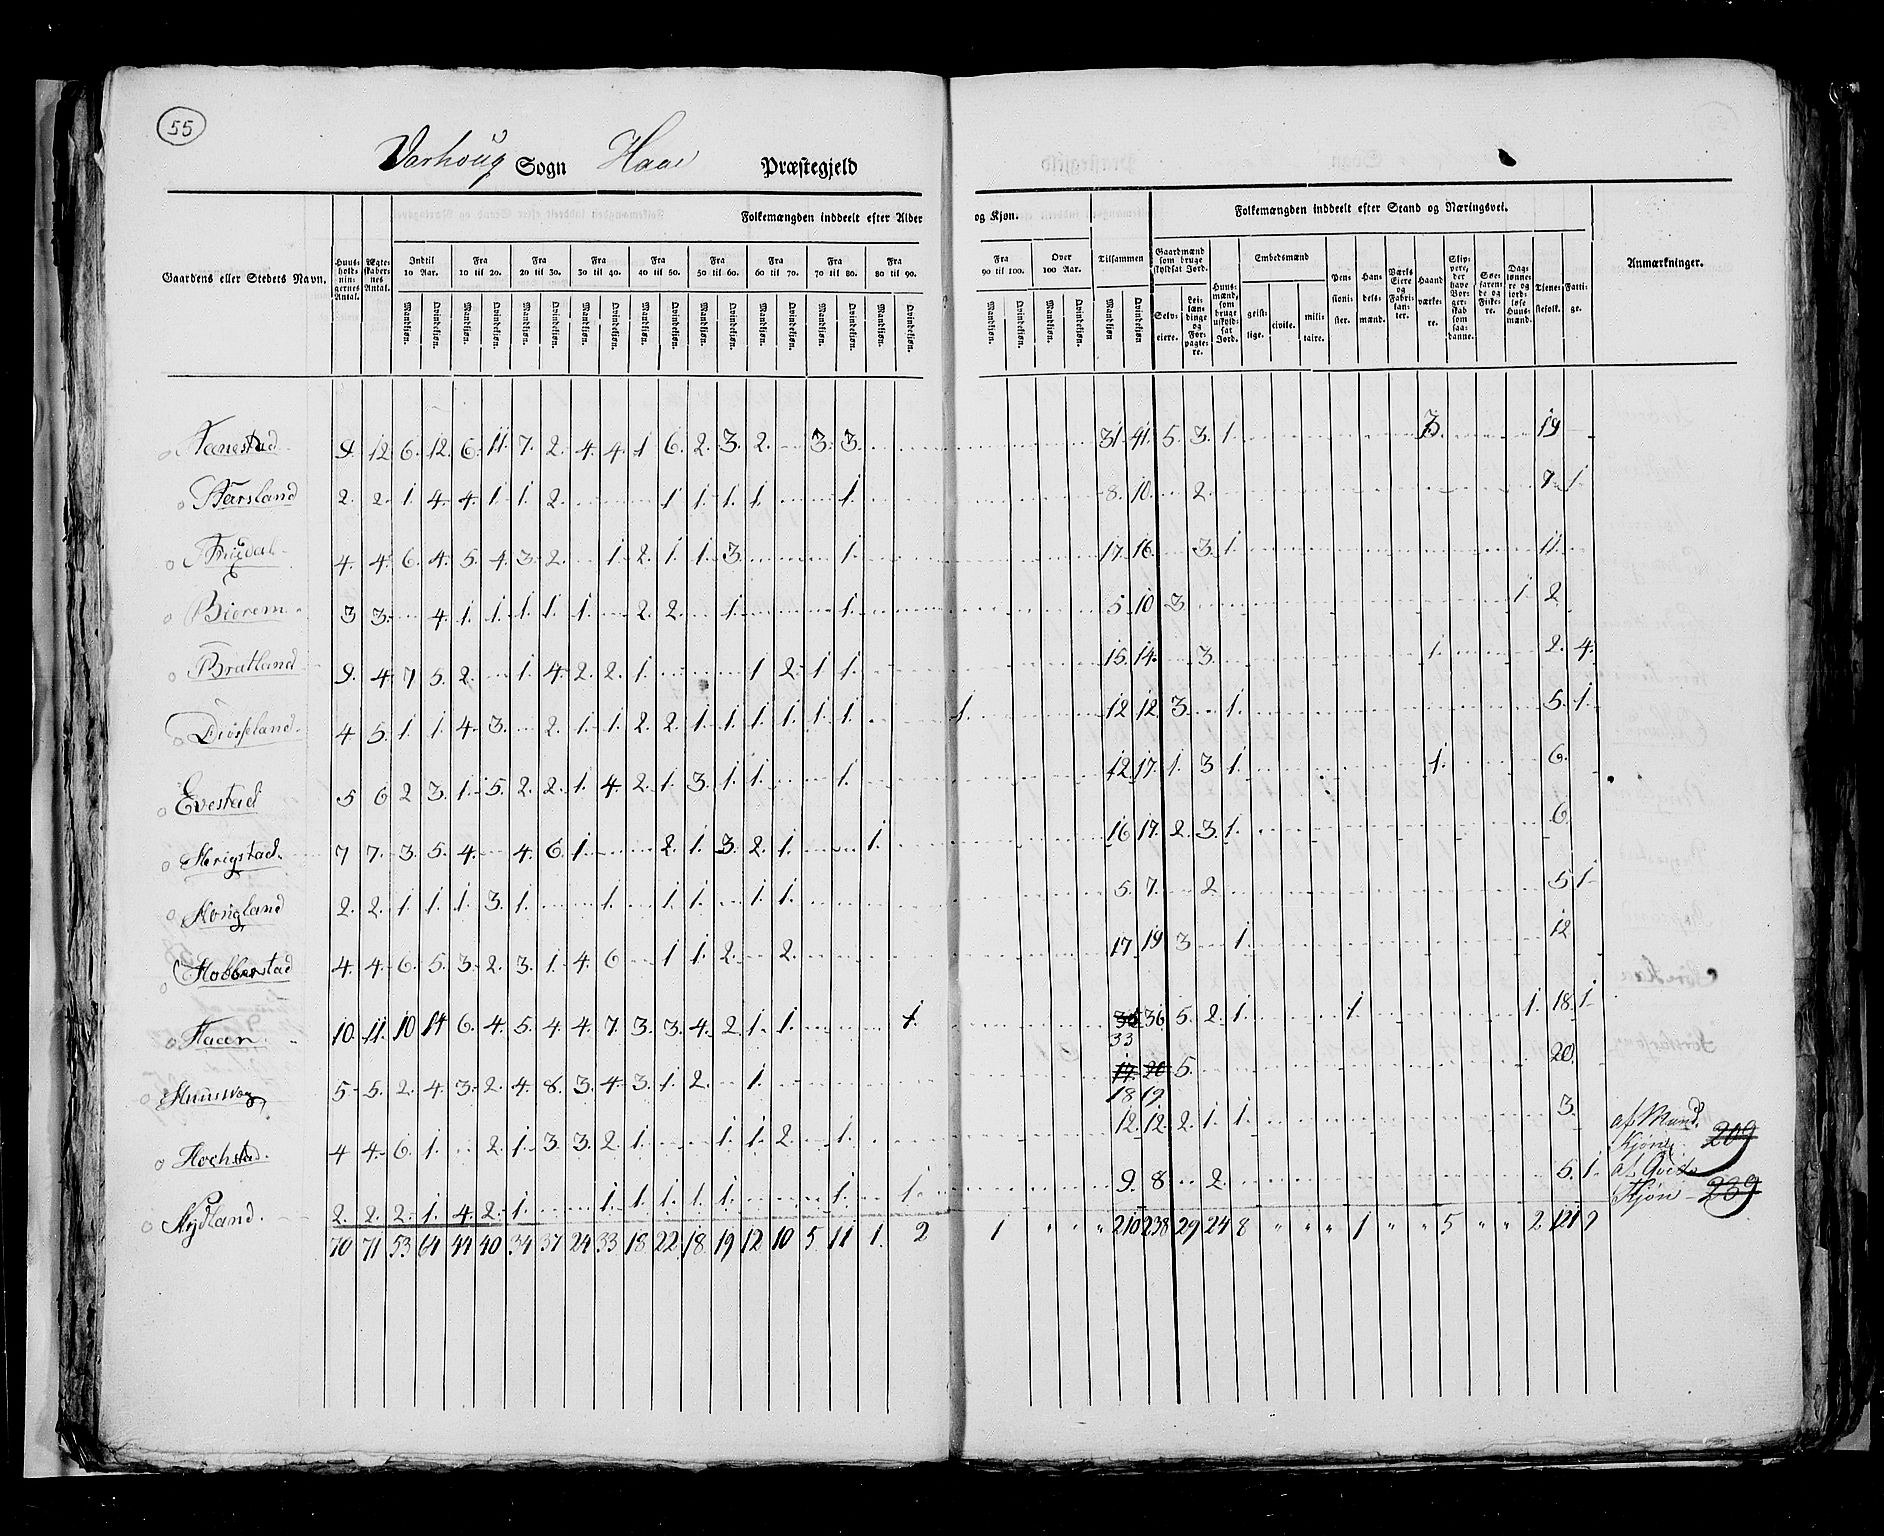 55
Varhoug Sogn Haae Præstegjeld
Folkemængden inddeelt efter Alder og Kjøn. Folkemængden inddeelt efter Stand og Næringsvei.
Gaardens eller Stedets Navn. Huusholdningernes Antal. Ægteskabernes Antal. Indtil 10 Aar. Fra 10 til 20. Fra 20 til 30. Fra 30 til 40. Fra 40 til 50. Fra 50 til 60. Fra 60 til 70. Fra 70 til 80. Fra 80 til 90. Fra 90 til 100. Over 100 Aar. Tilsammen Gaardmænd som bruge skyldsat Jord. Huusmænd, som bruge uskyldsat Jord. Embedsmænd Pensionister. Handelsmænd. Værks Eiere og Fabrikanter. Haandværkere. Skippere, der have Borgerskab som saadanne. Søefarende og Fiskere. Daglønnere og jordløse Huusmænd. Tjenestefolk. Fattige. Anmærkninger.
Mandkjøn. Qvindekjøn. Mandkjøn. Qvindekjøn. Mandkjøn. Qvindekjøn. Mandkjøn. Qvindekjøn. Mandkjøn. Qvindekjøn. Mandkjøn. Qvindekjøn. Mandkjøn. Qvindekjøn. Mandkjøn. Qvindekjøn. Mandkjøn. Qvindekjøn. Mandkjøn. Qvindekjøn. Mandkjøn. Qvindekjøn. Mandkjøn Qvindekjøn Selveiere. Leilændinge og Forpagtere. geistlige. civile. militaire.
9. 12. 6. 12. 6. 11. 7. 2. 4. 4. 1. 6. 2. 3. 2. 3. 3. 31. 41. 5. 3. 1. 3. 19
2. 2. 1. 4. 4. 1. 1. 2. 1. 1. 1. 1. 1. 8. 10. 2. 7. 1.
4. 4. 6. 4. 5. 4. 3. 2. 1. 2. 1. 1. 3. 1. 17. 16. 3. 1. 11.
Bierem 3 3. 4. 1. 1. 1. 1. 1. 2. 2. 1. 1. 5. 10 3 1. 2.
Bratland 9. 4. 7 5. 2. 1. 4. 2. 2. 1. 1 2. 1 1. 15. 14. 3. 1. 2. 4.
4 5. 1. 1. 4. 3. 2. 1. 1. 2. 2. 1. 1. 1. 1. 1. 1. 1. 12 12 3. 1. 5. 1.
Evestad 5 6 2 3. 1. 5. 2. 2. 1. 4. 2. 1. 3. 1. 1. 1. 12 17. 1. 3 1. 1. 6.
7 7. 3. 5. 4. 4. 6. 1. 2. 1. 3. 2. 1. 1. 16 17. 2. 3. 1. 6.
Hougland 2. 2. 1. 1. 1. 3. 1. 1. 1. 1. 1. 1. 5. 7. 2. 5 1.
Hobberstad 4. 4. 6. 5. 3. 2. 3. 1. 4. 6 1 1. 2. 2. 17 19 3 1. 12
Haaen. 10. 11. 10 14 6. 4. 5. 4 4. 7. 3. 3. 4. 2 1. 1. 1. 36 5. 2. 1. 1. 1. 18. 1.
33
5. 5. 2. 4. 3. 2. 4. 8. 3. 4. 3. 1. 2. 1. 17. 20 5. 20.
18. 19.
4 4. 6. 1. 2. 1. 3. 3. 2. 1. 1. 1. 2. 1. 12. 12. 2. 1. 1. 3. af Mand Kjøn 209
2. 2. 2. 1. 4. 2. 1. 1. 1. 1. 1. 1. 1. 1. 9. 8 2. 5. 1. af Qvinde Kjøn 239
70 71 53. 64 44 40 34 37 24 33 18 22 18 19 12 10 5. 11 1. 2 1 " " " 210 238 29 24 8 " " " 1 " " 5 " " 2. 121 9